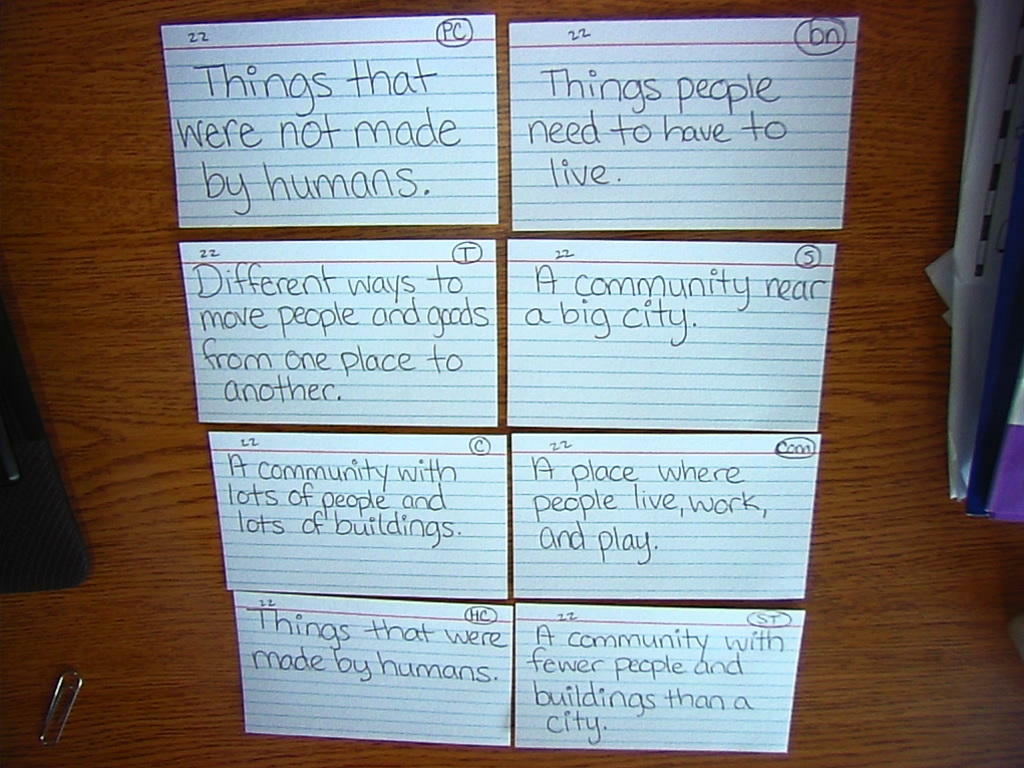 22 PC
Things that
were not made
by humans.
22 bn
Things people
need to have to
live.
22 T
Different ways to
move people and goods
from one place to
another.
22 S
A community near
a big city.
22 C
A community with
lots of people and
lots of buildings.
22 com
A place where
people live, work,
and play.
22 HC
Things that were
made by humans.
22 ST
A community with
fewer people and
buildings than a
city.